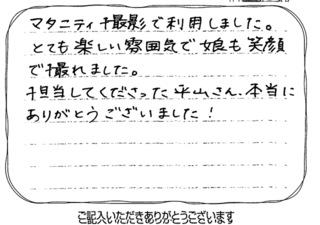 マタニティ撮影で利用しました。
とても楽しい雰囲気で娘も笑顔
で撮れました。
担当してくださった平山さん、本当に
ありがとうございました！
ご記入いただきありがとうございます